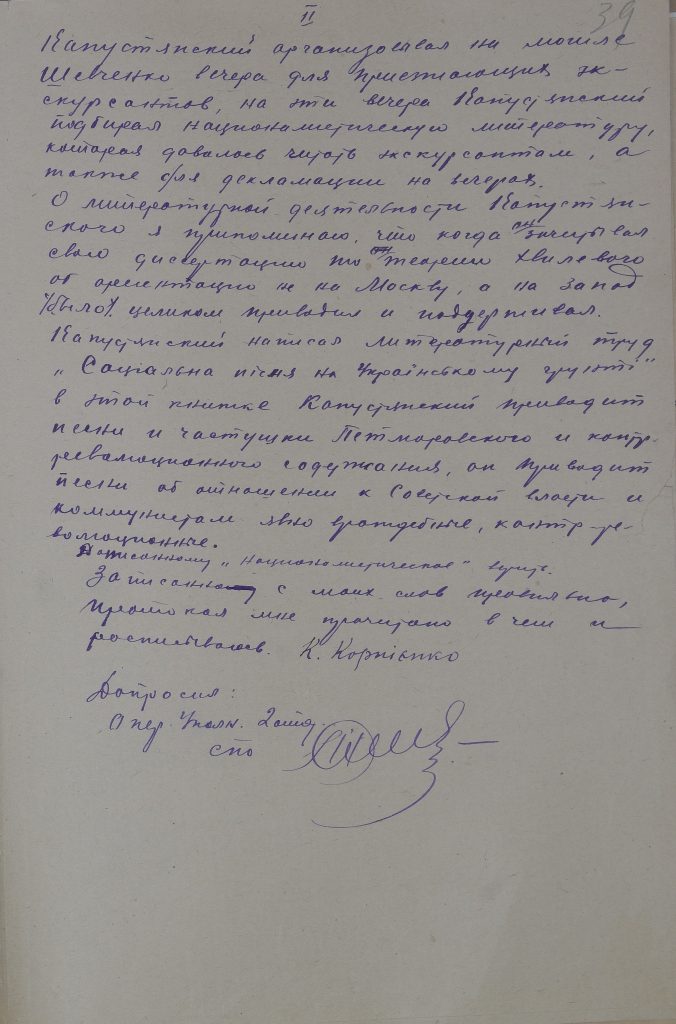 II
39
Капустянский организовывал на могиле
Шевченко вечера для приезжающих эк-
скурсантов, на эти вечера Капустянский
подбирал националистическую литературу,
которая давалось читать экскурсантам, а
также для декламации на вечерах.
О литературной деятельности Капустян-
ского я припоминаю, что когда он зачитывал
свою диссертацию то он теорию Хвилевого
об ориентации не на Москву, а на Запад
целиком приводил и поддерживал.
Капустянский написал литературный труд
„Соціальна пісня на Українському грунті"
в этой книжке Капустянский приводит
песни и частушки Петлюровского и контр-
революционного содержания, он приводит
песни об отношении к Советской власти и
коммунистам явно враждебные, контр-ре-
волюционные.
„националистическое"
Записанно с моих слов правильно,
протокол мне прочитано в чем и
росписываюсь. К. Корнієнко
Допросил:
Опер. Уполн. 2 отд.
СПО